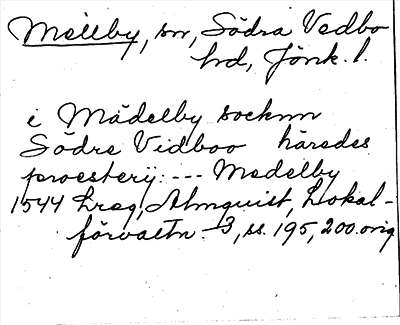 Mellby, sn, Södra Vedbo
hd, Jönk. l.
i Mädelby socknn
Södre Vidboo härsdes
proesterij: --- Medelby
1544 Lreg, Almquist, Lokal-
förvaltn. 3, ss. 195, 200. orig